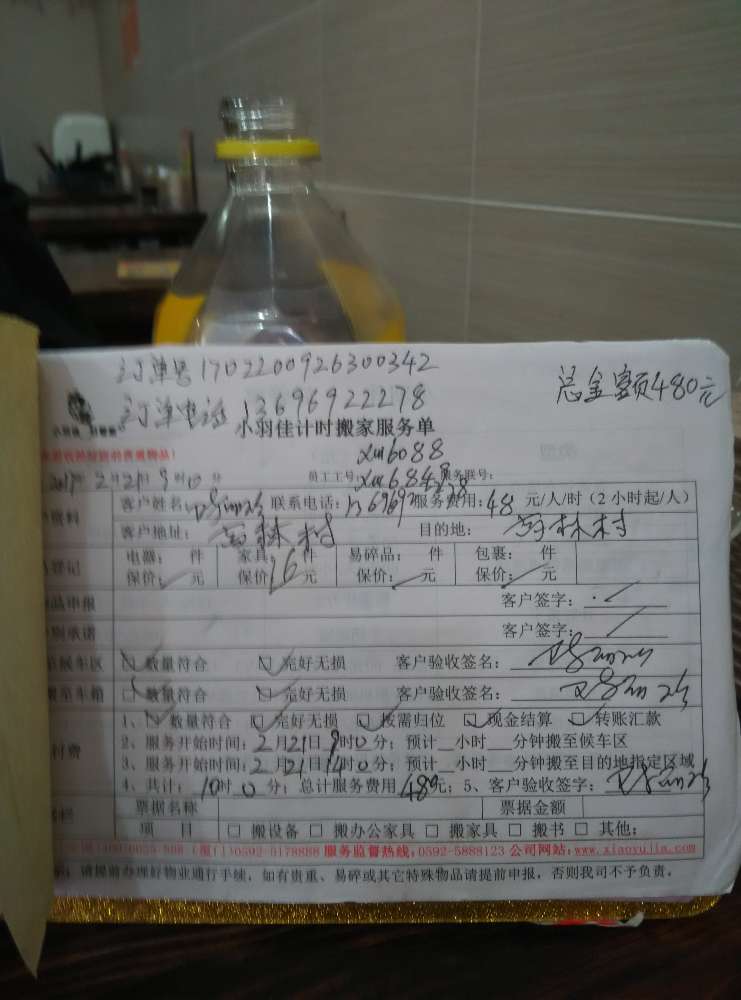 订单号1702200926300342
总金额480元
订单电话 13696922278
小羽佳计时搬家服务单
xm6088
2017年2月21日9时0分 员工工号: xm6848 服务联号:
资料 客户姓名: 联系电话: 服务费用:48元/人/时（2小时起/人）
客户地址: 林村 目的地: 林村
登记 电器: 件 家具: 件 易碎品: 件 包裹: 件
保价: 元 保价: 元 保价: 元 保价: 元
品申报 客户签字:
别承诺 客户签字:
至候车区 ☑数量符合 ☑完好无损 客户验收签名:
搬至车箱 ☑数量符合 ☑完好无损 客户验收签名:
1、☑数量符合 ☑完好无损 ☑按需归位 ☑现金结算 ☑转账汇款
付费 2、服务开始时间:2月21日9时0分; 预计__小时__分钟搬至候车区
3、服务开始时间:2月21日14时0分; 预计__小时__分钟搬至目的地指定区域
4、共计:10时0分; 总计服务费用480元; 5、客户验收签字:
票据名称 票据金额
项 目 □ 搬设备 □ 搬办公家具 □ 搬家具 □ 搬书 □ 其他:
0592-5178888 服务监督热线:0592-5888123 公司网站:www.xiaoyujia.com
示: 请提前办理好物业通行手续，如有贵重、易碎或其它特殊物品请提前申报，否则我司不予负责。